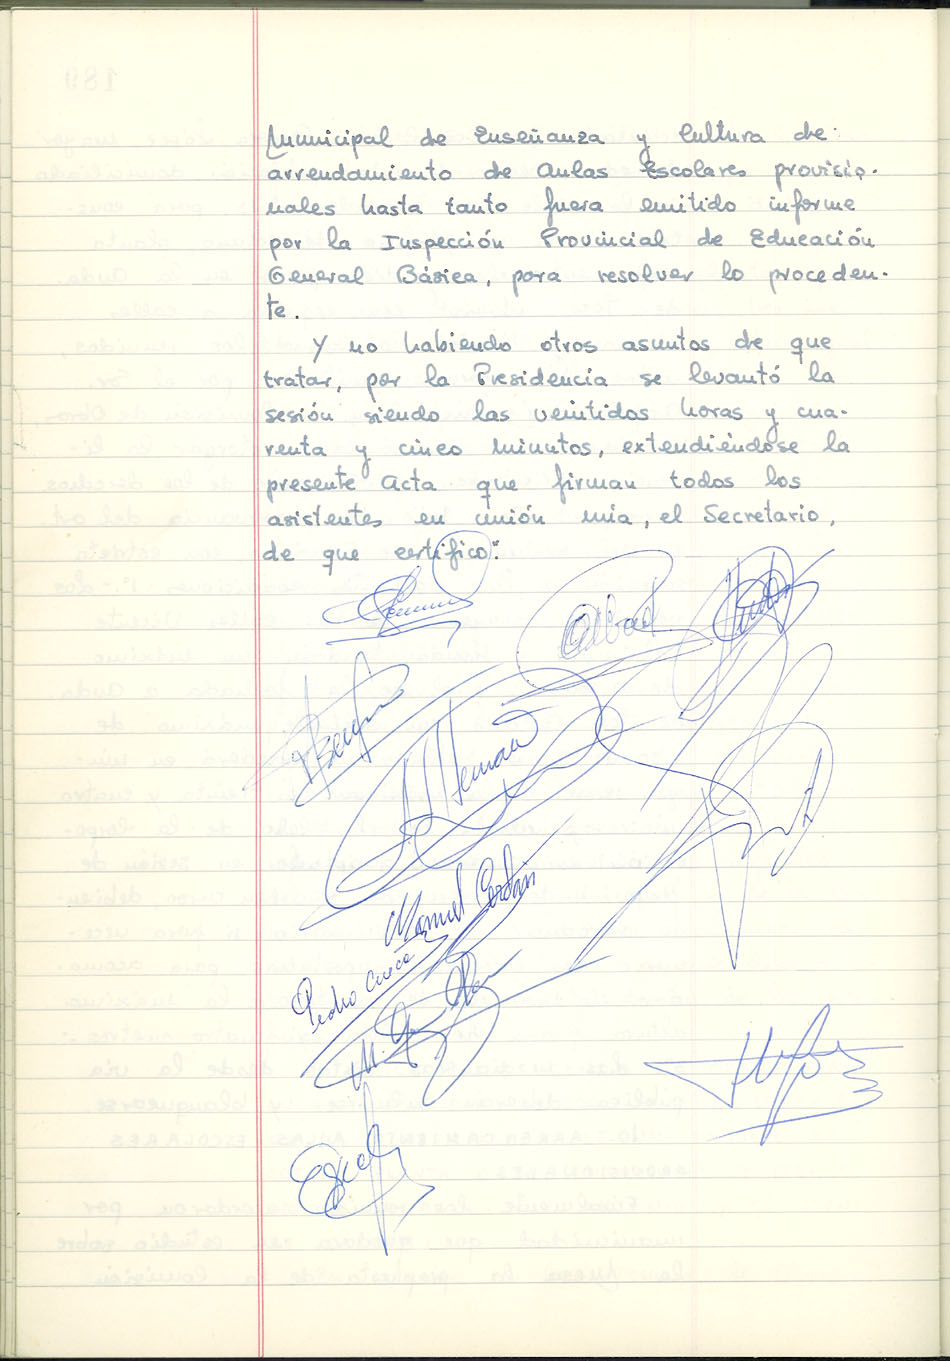 Municipal de Enseñanza y Cultura de
arrendamiento de Aulas Escolares provisio-
nales hasta tanto fuera emitido informe
por la Inspección Provincial de Educación
General Básica, para resolver lo proceden-
te.
Y no habiendo otros asuntos de que
tratar, por la Presidencia se levantó la
sesión siendo las veintidos horas y cua-
renta y cinco minutos, extendiéndose la
presente Acta que firman todos los
asistentes en unión mia, el Secretario,
de que certifico".
Manuel Cerdán
Pedro Cueca